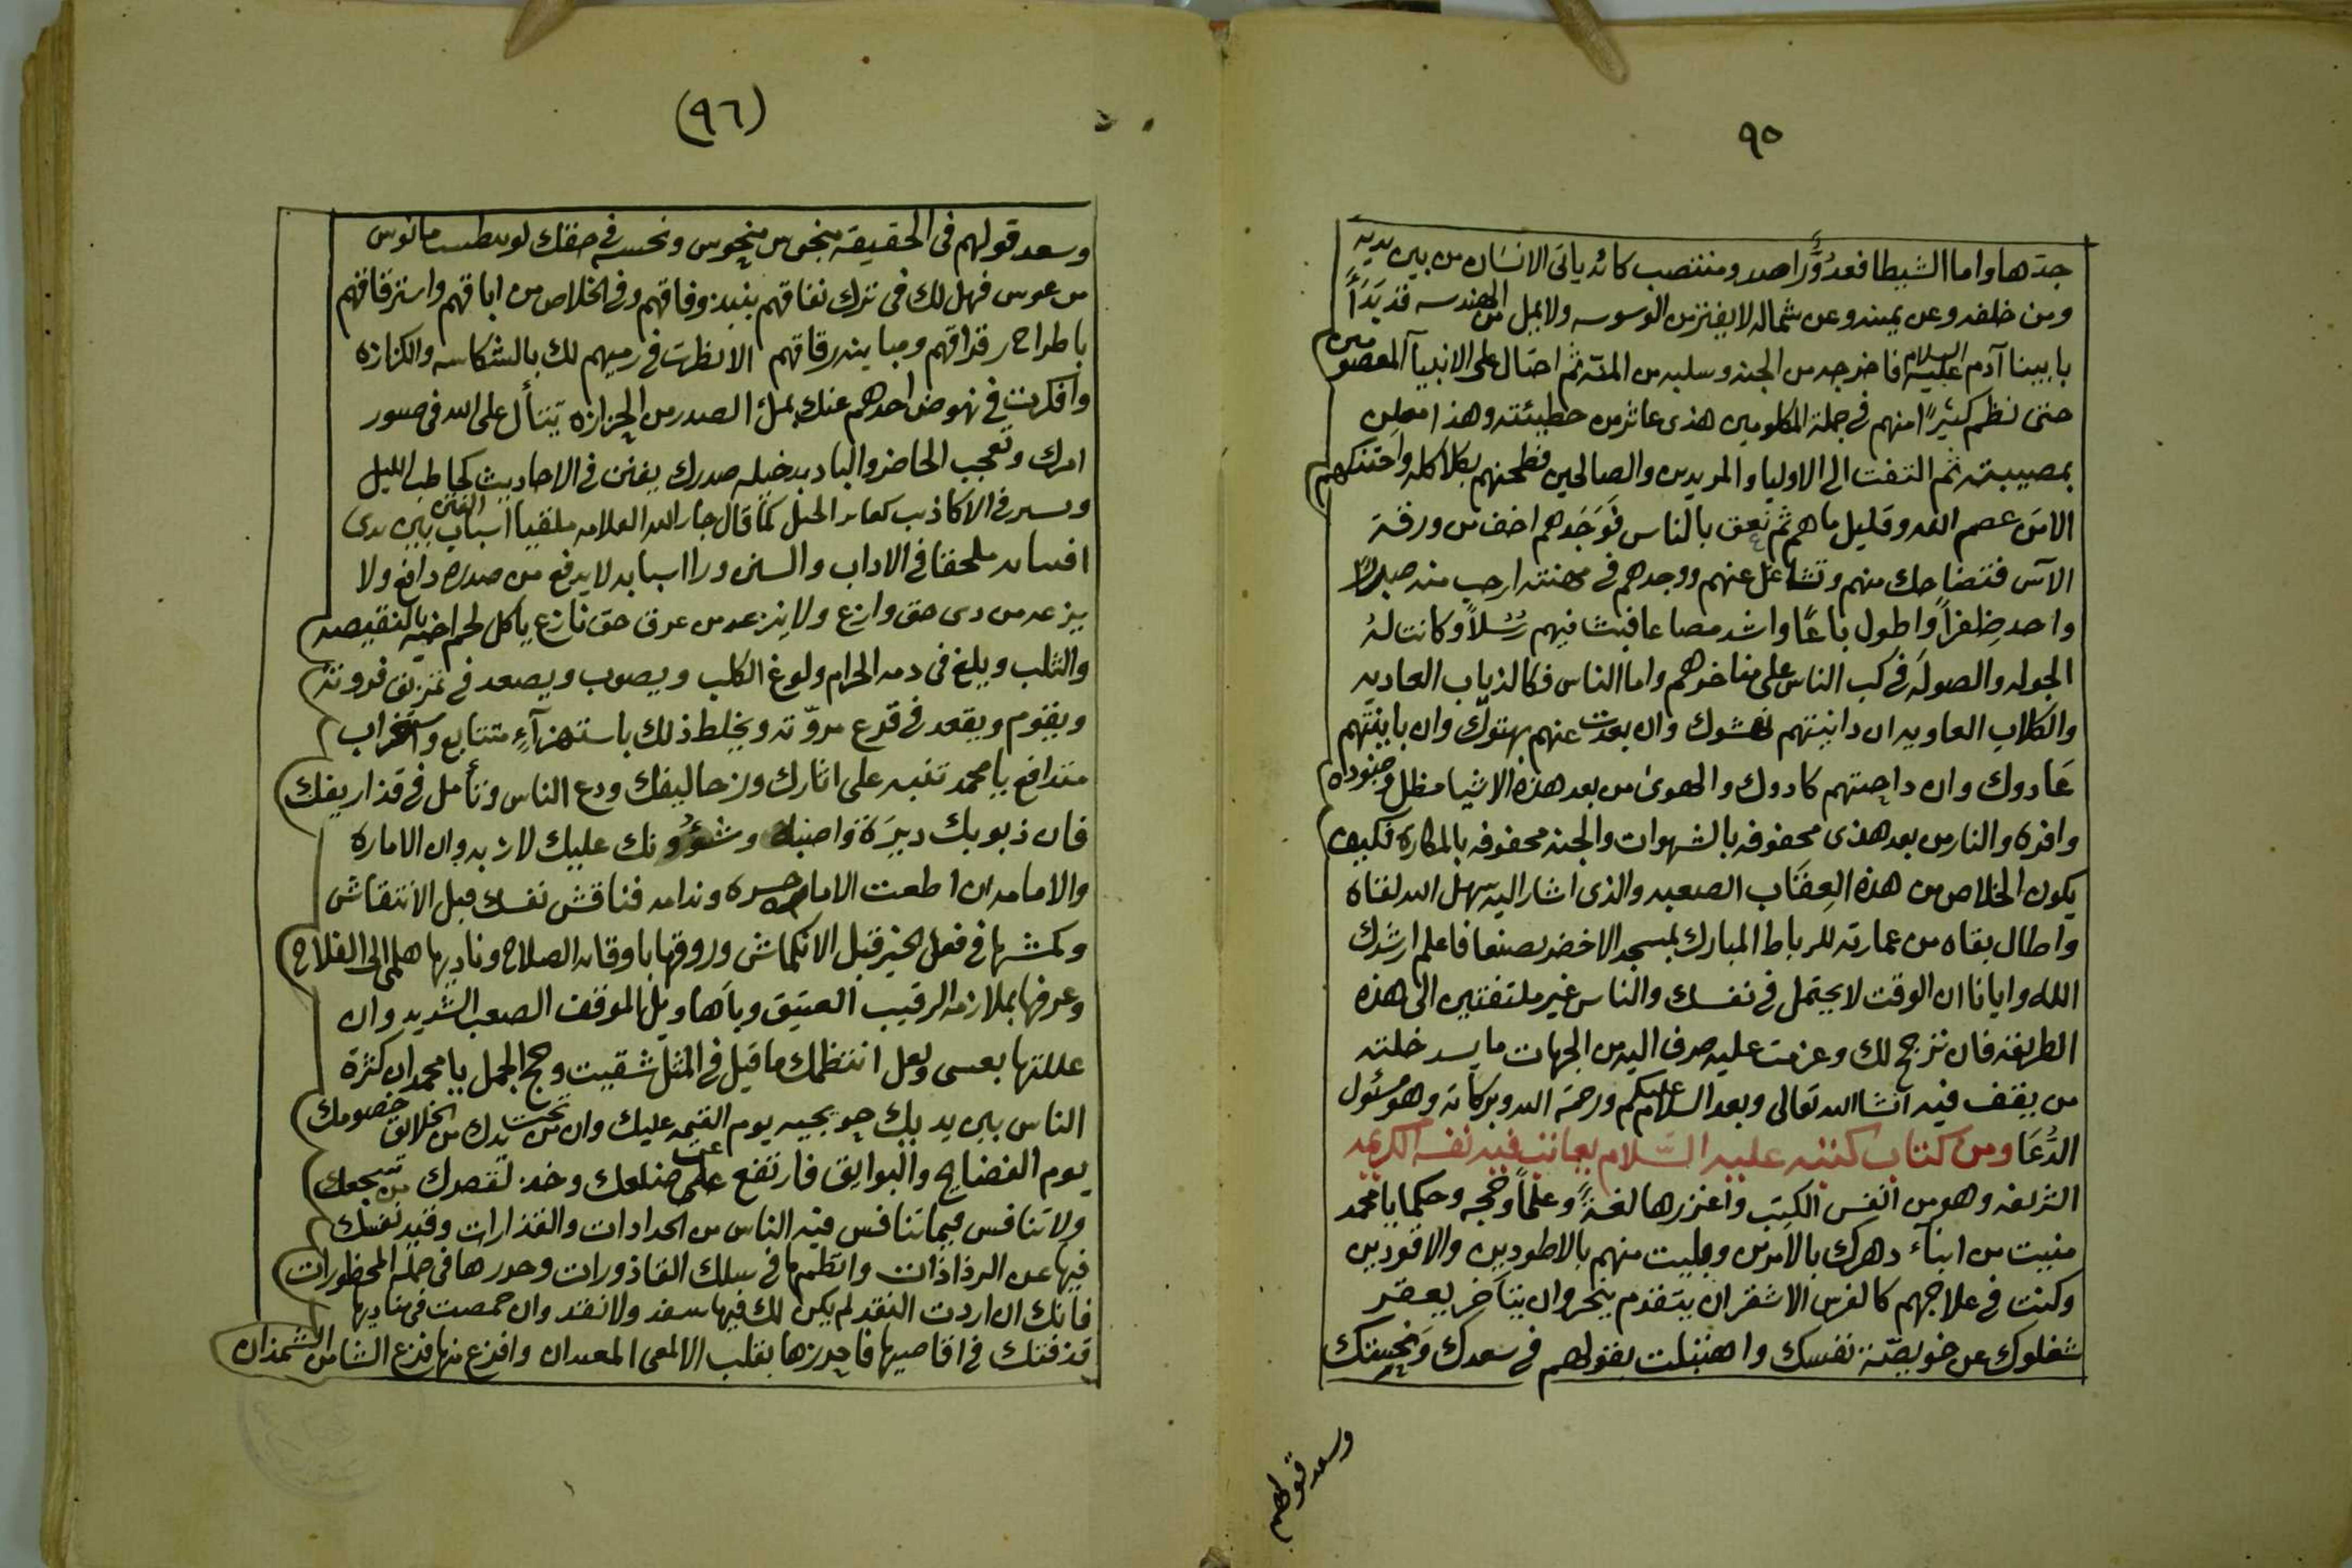 ٩٥
جدها واما الشيطا فعدُوٌّ راصد ومنتصب كانه ياتى الانسان من بين يديه
ومن خلفه وعن يمينه وعن شماله لا يفتر من الوسوسه ولا يمل من الهندسه قد بَدَأَ
بابينا آدم عليه السلام فاخرجه من الجنه وسلبه من المنّه ثم احتال على الانبيآ المعصومين
حتى نظم كثيرًا منهم فى جملة المكلومين هذى عاثر من خطيئته وهذا معلن
بمصيبته ثم التفت الى الاوليا والمريدين والصالحين فطحنهم بكلاكله واحتنكهم
الا من عصم الله وقليل ما هم ثم نعق بالناس فَوَجَدهم اخف من ورقة
الآس فتضاحك منهم وتشاغل عنهم ووجدهم فى مهنته ارحب منه
واحد ظفراً واطول باعًا واشد مصاعا فبث فيهم رُسُلاً وكانت لهُ
الجوله والصولَه فى كب الناس على مناخرهم واما الناس فكالذياب العاديه
والكلاب العاويه ان دانيتهم نهشوك وان بعدت عنهم بهتوك وان باينتهم
عَادوك وان داجنتهم كادوك والهوىٰ من بعد هذه الاشيا مظل وجنوده
وافرة والنار من بعد هذى محفوفه بالشهوات والجنه محفوفه بالمكاره فكيف
يكون الخلاص من هذه العِقَاب الصعبه والذى اشار اليه سهل الله لقاه
واطال بقاه من عمارته للرباط المبارك بمسجد الاخضر بصنعا فاعلم ارشدك
الله وايانا ان الوقت لا يحتمل فى نفسك والناس غير ملتفتين الى هذه
الطريقه فان ترجح لك وعزمت عليه صرف اليه من الجهات ما يسد خلته
من يقف فيه انشا الله تعالى وبعد السلام عليكم ورحمة الله وبركاته وهو مسئول
الدُّعَا ومن كتاب كتبه عليه السّلام يعاتب فيه نفسه الكريمه
الشريفه وهو من انفس الكتب واغزرها لغةً وعلماً وحجه وحكما يا محمد
منيت من ابناء دهرك بالامرّين وبليت منهم بالاطودين والاقودين
وكنت فى علاجهم كالفرس الاشقر ان يتقدم ينحر وان يتاخر يعقر
شغلوك عن خويصّة نفسك واهتبلت بقولهم فى سَعدك وَنحيفتك
وسعد قولهم
(٩٦)
وسعد قولهم فى الحقيقه منحوس ونحسه فى حقك لو بيطس مانوس
من عوس فهل لك فى ترك نفاقهم بنبذ وفاقهم وفى الخلاص من اباقهم واسترقاقهم
باطراح رقراقهم ومباينه رقاقهم الا نظرت فى رميهم لك بالشكاسه والكزازه
وافكرت فى نهوض احدهم عنك بملئ الصدر من الحزازه يتأل على الله فى صور
امرك وتعجب الحاضر والبادى بدخيله صدرك يفتن فى الاحاديث كحاطب الليل
ويسر فى الاكاذيب كعاير الخيل كما قال جار الله العلامه ملقيا اسباب الفتن بين يدى
افساده ملحقا فى الاداب والسنن ورا اسبابه لا يرفع من صدره دافع ولا
يزعه من دى حق وازع ولا ينزعه من عرق حق نازع ياكل لحم اخيه بالنقيصه
والثلب ويلغ فى دمه الحرام ولوغ الكلب ويصوب ويصعد فى تمزيق فروته
ويقوم ويقعد فى قدع مروّته ويخلط ذلك باستهزآءٍ متتابع واستغراب
متدافع يا محمد تنبه على اثارك وزحاليفك ودع الناس وتأمل فى قذاريفك
فان ذبوبك دبِرَة واصبك وشؤونك عليك لازبه وان الاماره
والامامه ان اطعت الاماره حسرة وندامه فناقش نفسك قبل الانتقاش
وكمشها فى فعل الخير قبل الانكماش وروقها باوقات الصلاح وناديها هلمى الى الفلاح
وعرفها بملازمه الرقيب العتيق وباَهاويل الموقف الصعب الشديد وان
عللتها بعسى ولعل انتظمك ما قيل فى المثل شقيت وحج الجمل يا محمد ان كثرة
الناس بين يديك حويجيه يوم القيمه عليك وان من تحت يدك من الخلايق خصومك
يوم الفضايح والبوايق فارتفع على ضلعك وخذ لقصدك من سجعك
ولا تنافس فيما تنافس فيه الناس من الحدادات والقذارات وقيد نفسك
فيها عن الرذاذات وانظمها فى سلك القاذورات وحدرها فى جمله المحظورات
فانك ان اردت النقد لم يكن لك فيها سفد ولا نقد وان حمصت فى مناديها
قذفتك فى اقاصيها فاحرزها بقلب الالمعى المعدان وافزع منها فزع الشامس الشمذان